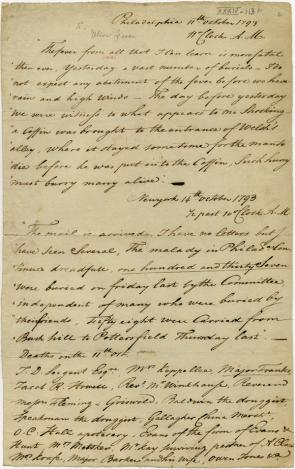 Philadelphia 11th October 1793
11 o Clock A.M.
The fever from all that I can learn is more fatal
then ever. Yesterday a vast number of buries - I do
not expect any abatement of the fever before we have
rain and high winds - The day before yesterday
we were witness to what appears to me Shocking
a Coffin was brought to the entrance of Welch's
alley, where it stayed some time for the man to
die before he was put into the Coffin, Such hurry
must burry many alive.
Newyork 14th October 1793
½ past 10 o Clock A.M
The mail is arrived, I have no letters but
have seen Several, The malady in Philada Con
tinues dreadfull, one hundred and thirty Seven
were buried on friday last by the Committee
independent of many who were buried by
their friends, fifty eight were Carried from
Bush hill to Pottersfield Thursday last
Deaths on the 11th Oct.
J. D. Sergent Esqr. Mrs Keppellea, Major Franks,
Jacob R. Howell, Revd. Mr Winkhaus, Reverend
Messrs Fleming, Griswold, Baldwin the druggist
Speakman the druggist, Gallagher China Mercht.
O. C. Hall apotecary, Evans of the firm of Evans &
Hunt